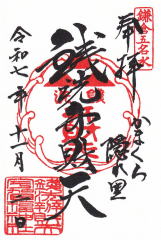 鎌倉五名水
奉拝
かまくら
隠れ里
銭洗弁財天
令和七年十一月